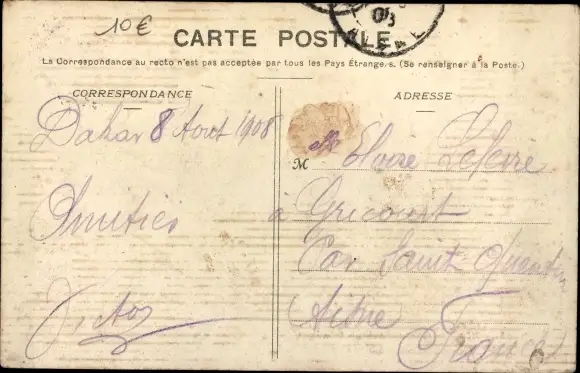 10 €
CARTE POSTALE
La Correspondance au recto n'est pas acceptée par tous les Pays Étrangers. (Se renseigner à la Poste.)
CORRESPONDANCE
Dakar 8 Aout 1908
Amitiés
Victor
ADRESSE
M Elvoire Lefevre
à Gricourt
Par Saint Quentin
(Aisne)
France